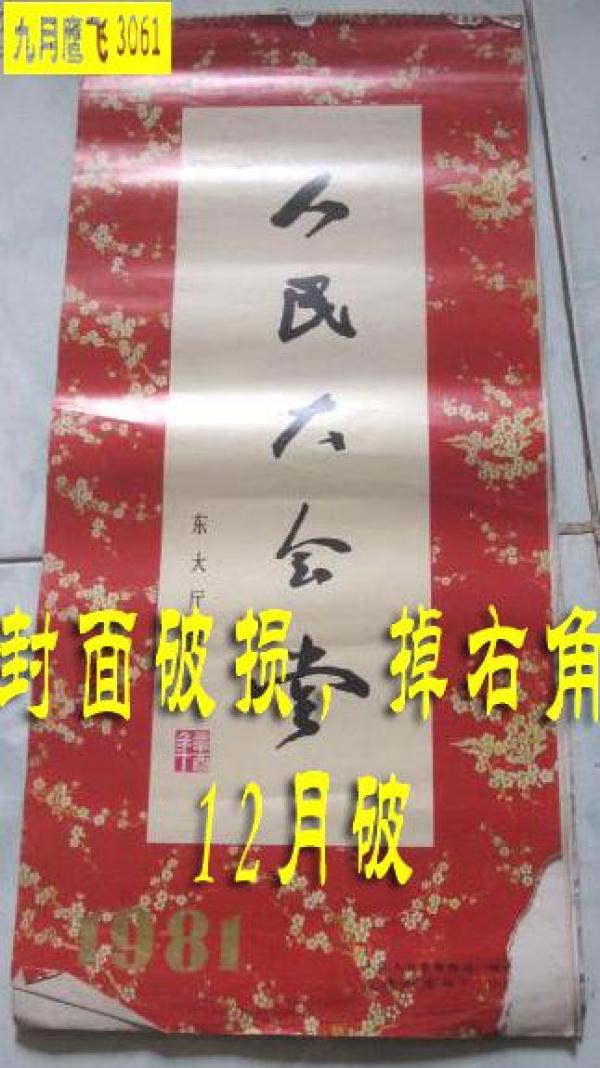 九月鹰飞3061
人民大会堂
东大厅
封面破损，掉右角
12月破
1981